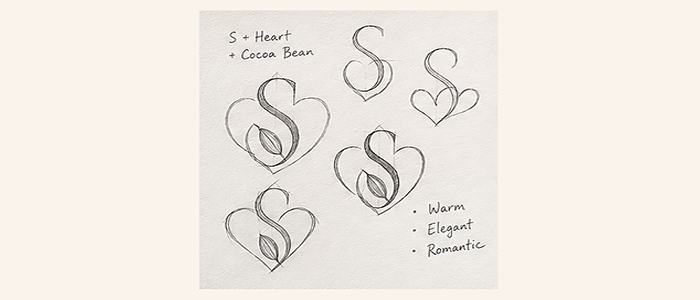 S + Heart
+ Cocoa Bean
• Warm
• Elegant
• Romantic